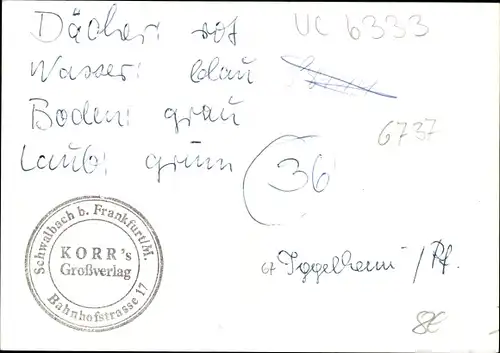 Dächer: rot
UC 6333
Wasser: blau
Boden: grau
6737
Laub: grün
36
Schwalbach b. Frankfurt/M.
KORR's
Großverlag
Bahnhofstrasse 17
67 Iggelheim /Pf.
8€